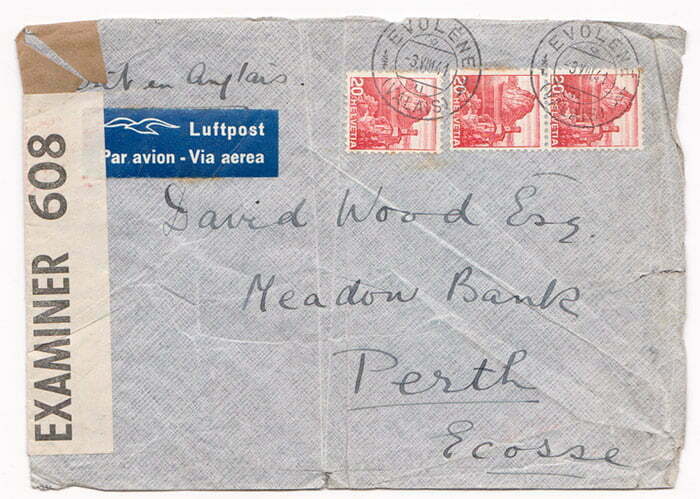 EVOLENE
-3.VIII.41
(VALAIS)
EVOLENE
-3.VIII.41
20
HELVETIA
20
HELVETIA
20
HELVETIA
en Anglais.
Luftpost
Par avion - Via aerea
EXAMINER 608
David Wood Esq.
Meadow Bank
Perth
Ecosse